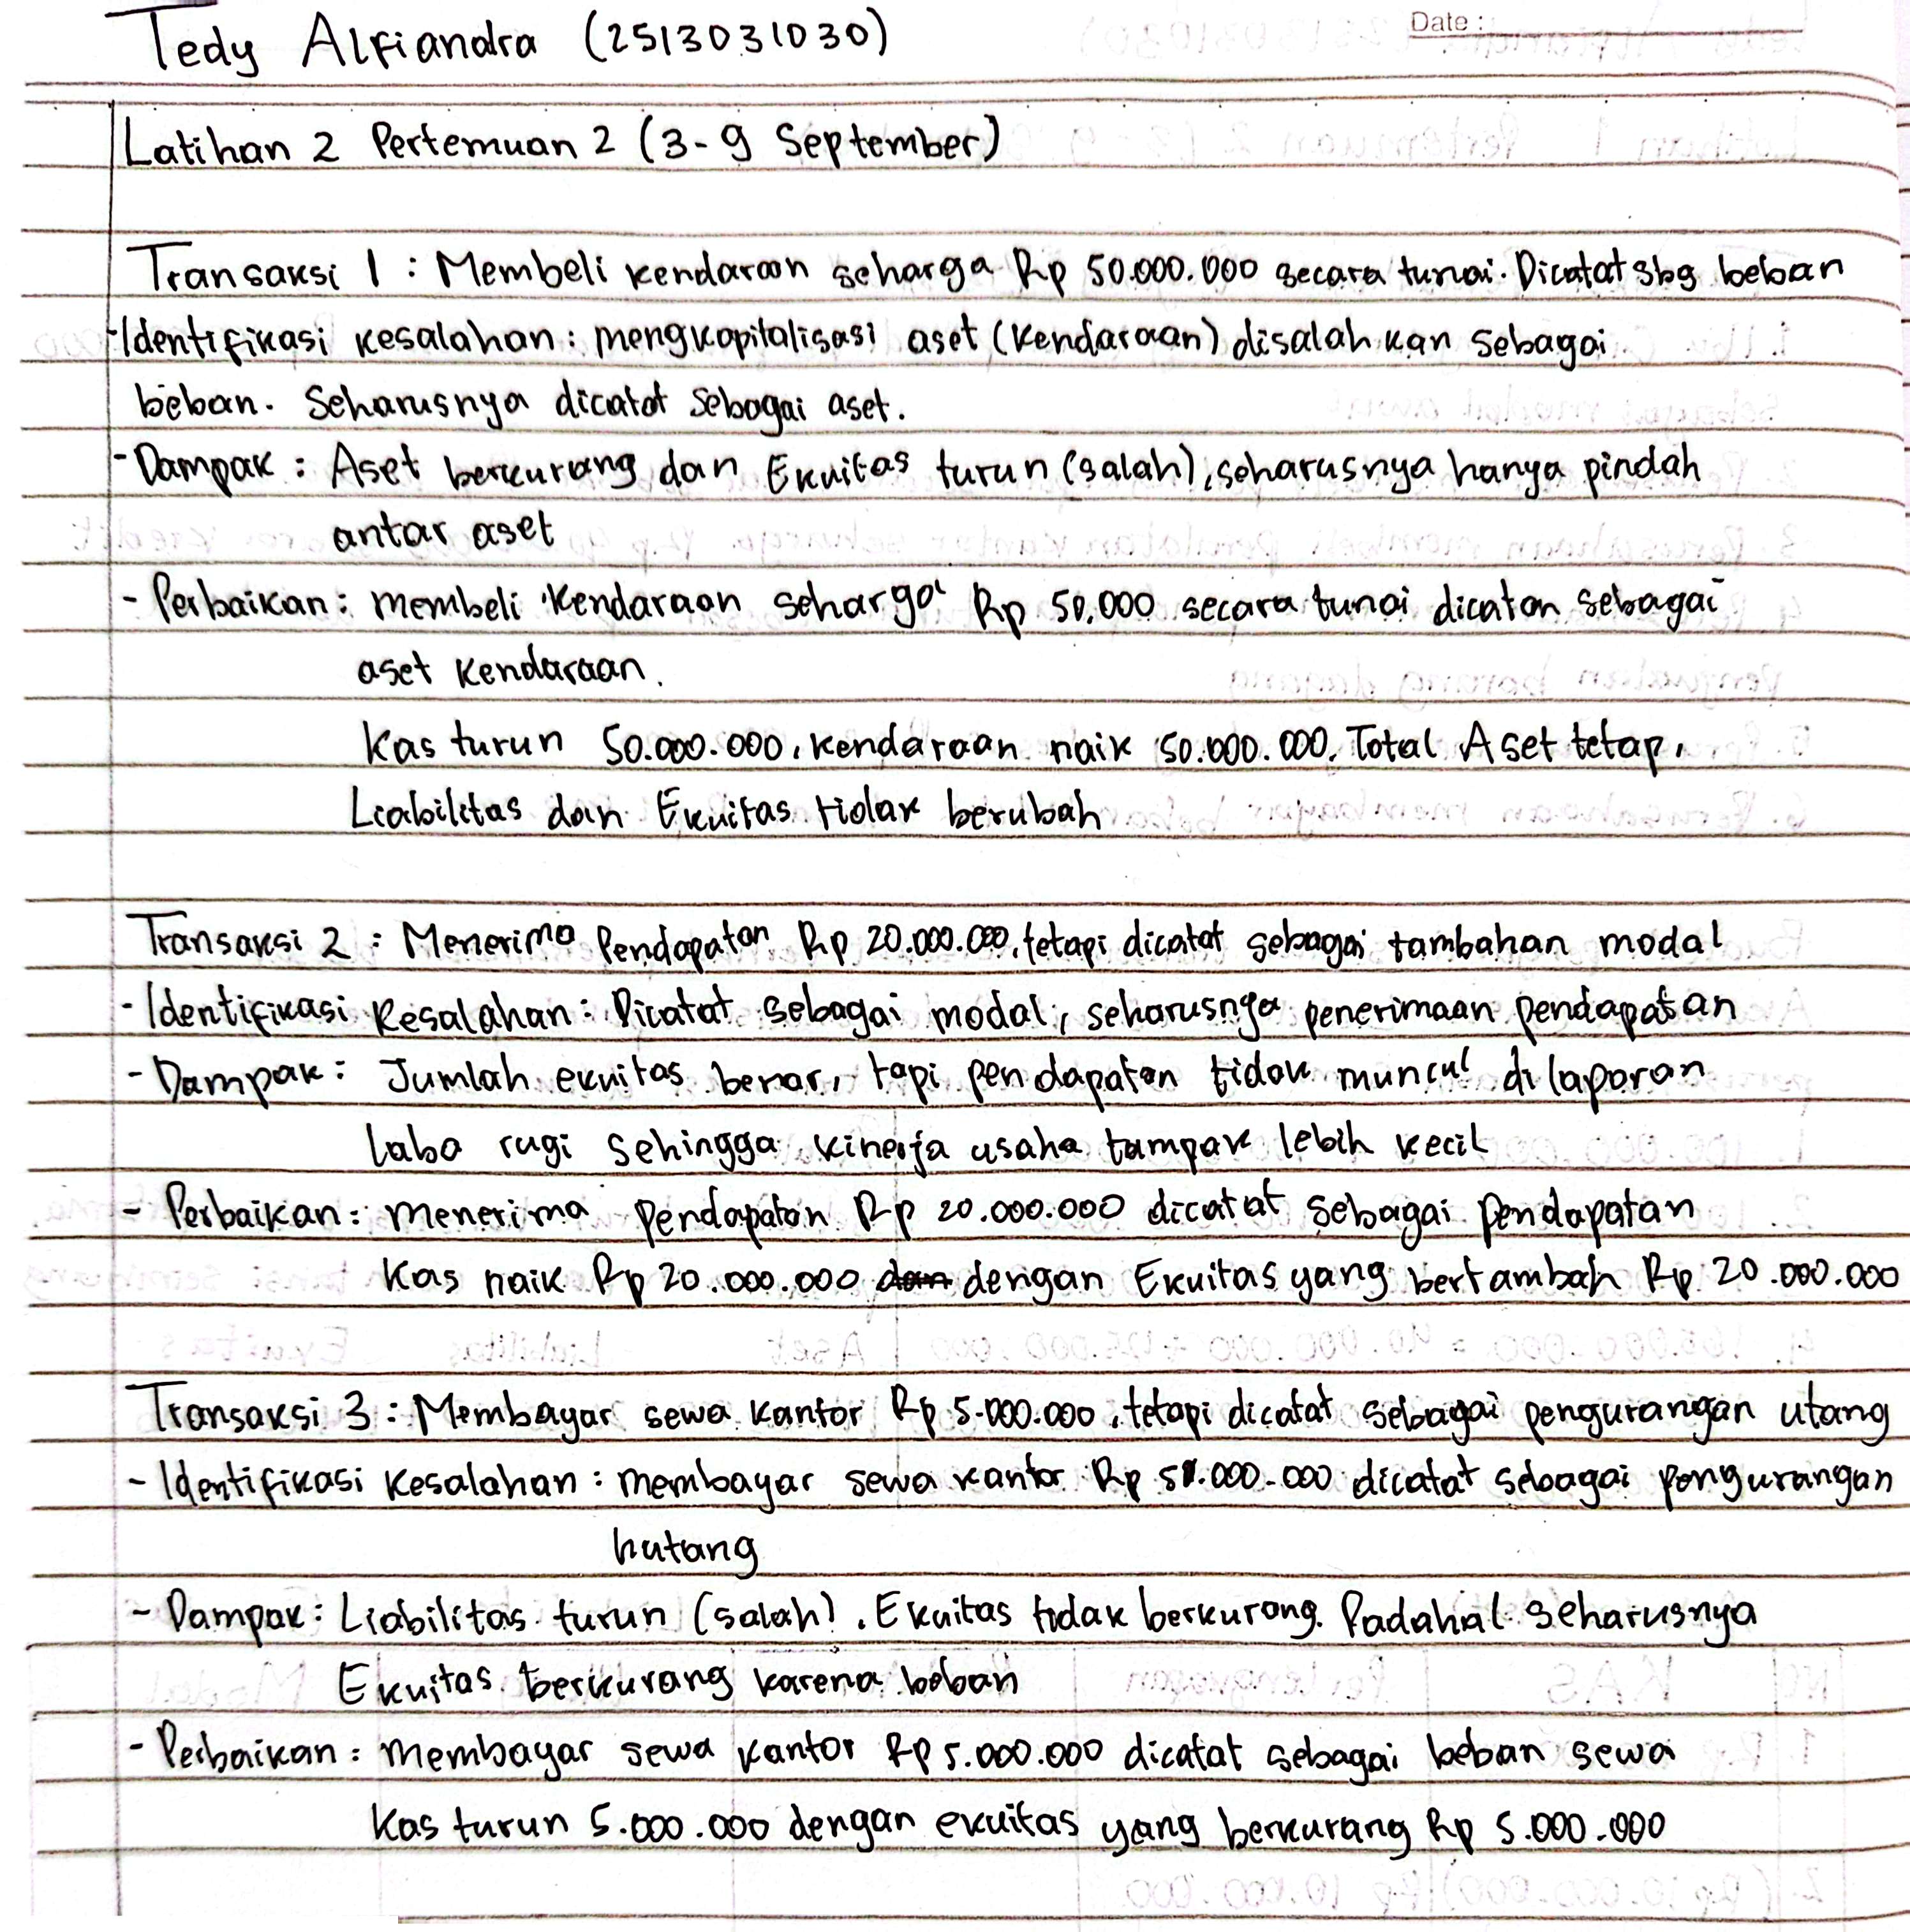 Tedy Alfiandra (2513031030)
Date :
Latihan 2 Pertemuan 2 (3-9 September)
Transaksi 1 : Membeli kendaraan seharga Rp 50.000.000 secara tunai. Dicatat sbg beban
- Identifikasi kesalahan : mengkapitalisasi aset (kendaraan) disalah kan sebagai
beban. Seharusnya dicatat sebagai aset.
- Dampak : Aset berkurang dan Ekuitas turun (salah), seharusnya hanya pindah
antar aset
- Perbaikan : membeli kendaraan seharga Rp 50.000 secara tunai dicatan sebagai
aset kendaraan.
Kas turun 50.000.000, kendaraan naik 50.000.000, Total Aset tetap,
Liabilitas dan Ekuitas tidak berubah
Transaksi 2 : Menerima Pendapatan Rp 20.000.000, tetapi dicatat sebagai tambahan modal
- Identifikasi Kesalahan : Dicatat sebagai modal, seharusnya penerimaan pendapatan
- Dampak : Jumlah ekuitas benar, tapi pendapatan tidak muncul di laporan
laba rugi sehingga kinerja usaha tampak lebih kecil
- Perbaikan : menerima pendapatan Rp 20.000.000 dicatat sebagai pendapatan
Kas naik Rp 20.000.000 dan dengan Ekuitas yang bertambah Rp 20.000.000
Transaksi 3 : Membayar sewa kantor Rp 5.000.000, tetapi dicatat sebagai pengurangan utang
- Identifikasi kesalahan : membayar sewa kantor Rp 5.000.000 dicatat sebagai pengurangan
hutang
- Dampak : Liabilitas turun (salah). Ekuitas tidak berkurang. Padahal seharusnya
Ekuitas berkurang karena beban
- Perbaikan : membayar sewa kantor Rp 5.000.000 dicatat sebagai beban sewa
Kas turun 5.000.000 dengan ekuitas yang berkurang Rp 5.000.000